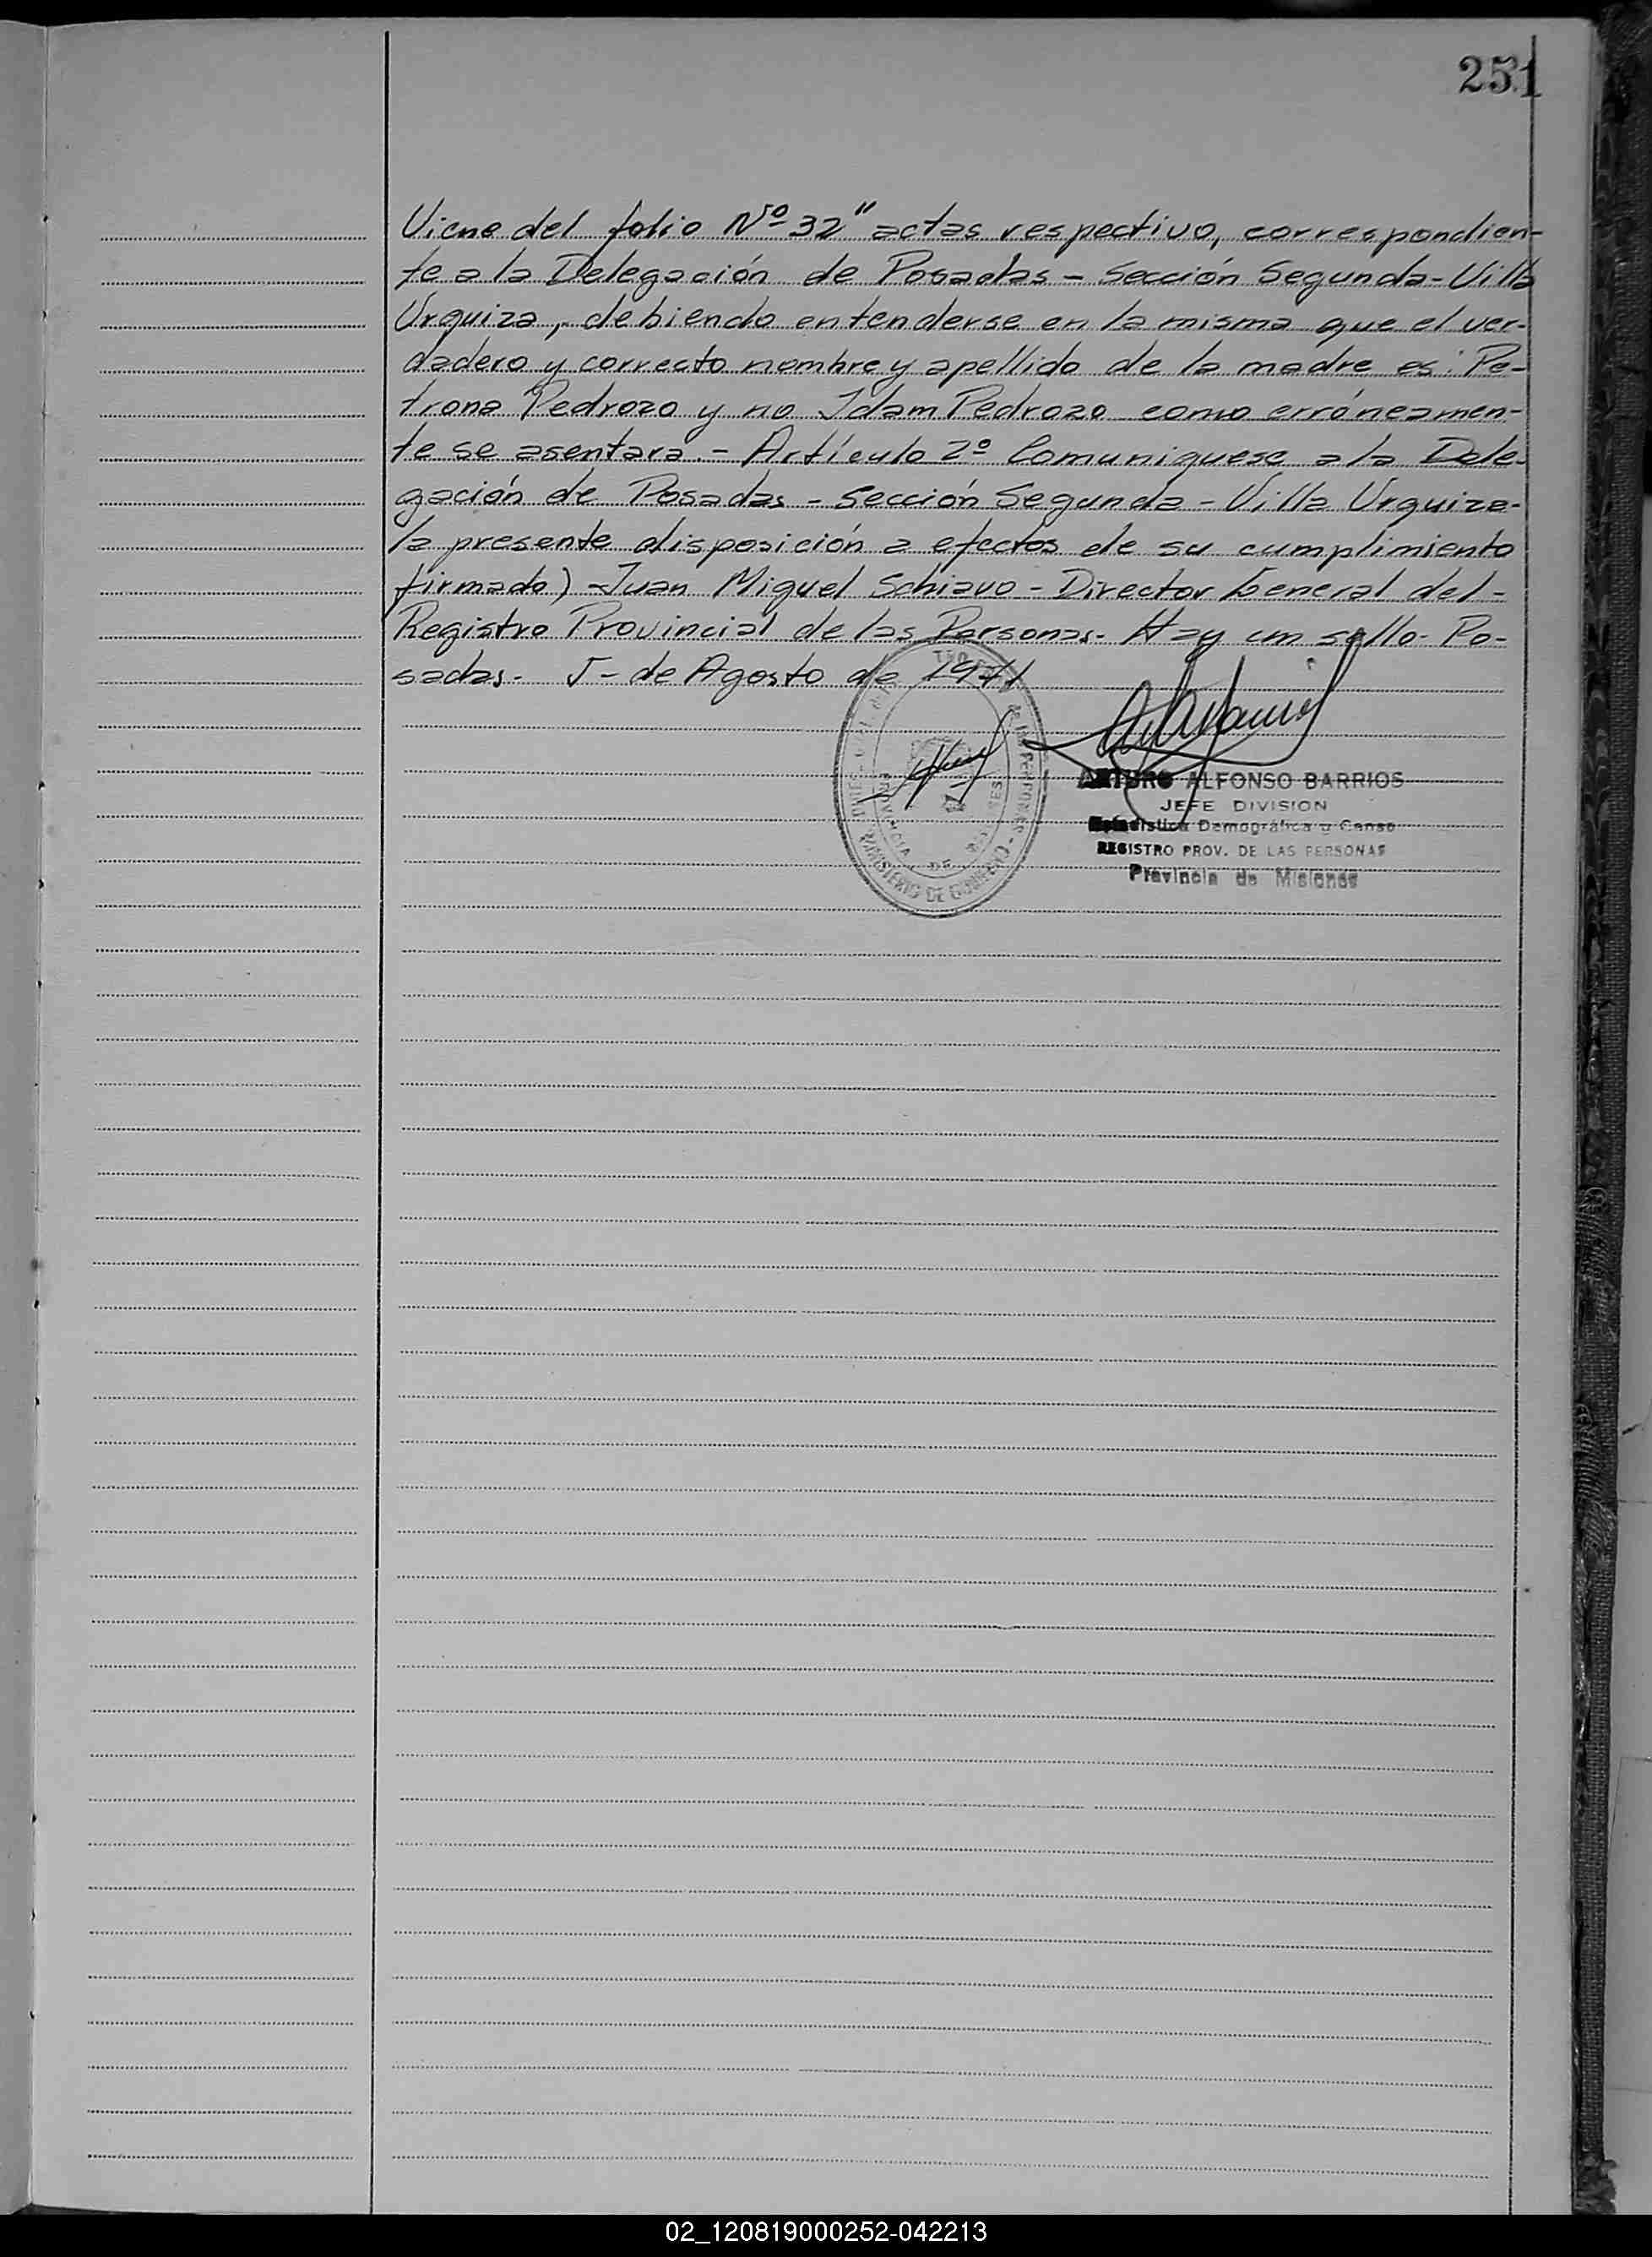 251
Viene del folio Nº 32" actas respectivo, correspondien-
te a la Delegación de Posadas - Sección Segunda - Villa
Urquiza, debiendo entenderse en la misma que el ver-
dadero y correcto nombre y apellido de la madre es: Pe-
trona Pedrozo y no Idam Pedrozo como erróneamen-
te se asentara. - Artículo 2º Comuniquese a la Dele-
gación de Posadas - Sección Segunda - Villa Urquiza -
la presente disposición a efectos de su cumplimiento
firmado) - Juan Miguel Schiavo - Director General del -
Registro Provincial de las Personas - Hay un sello - Po-
sadas - 5 - de Agosto de 1971
ARTURO ALFONSO BARRIOS
JEFE DIVISION
Estadística Demográfica y Censo
REGISTRO PROV. DE LAS PERSONAS
Provincia de Misiones
PROVINCIA DE
MINISTERIO DE GOBIERNO
02_120819000252-042213